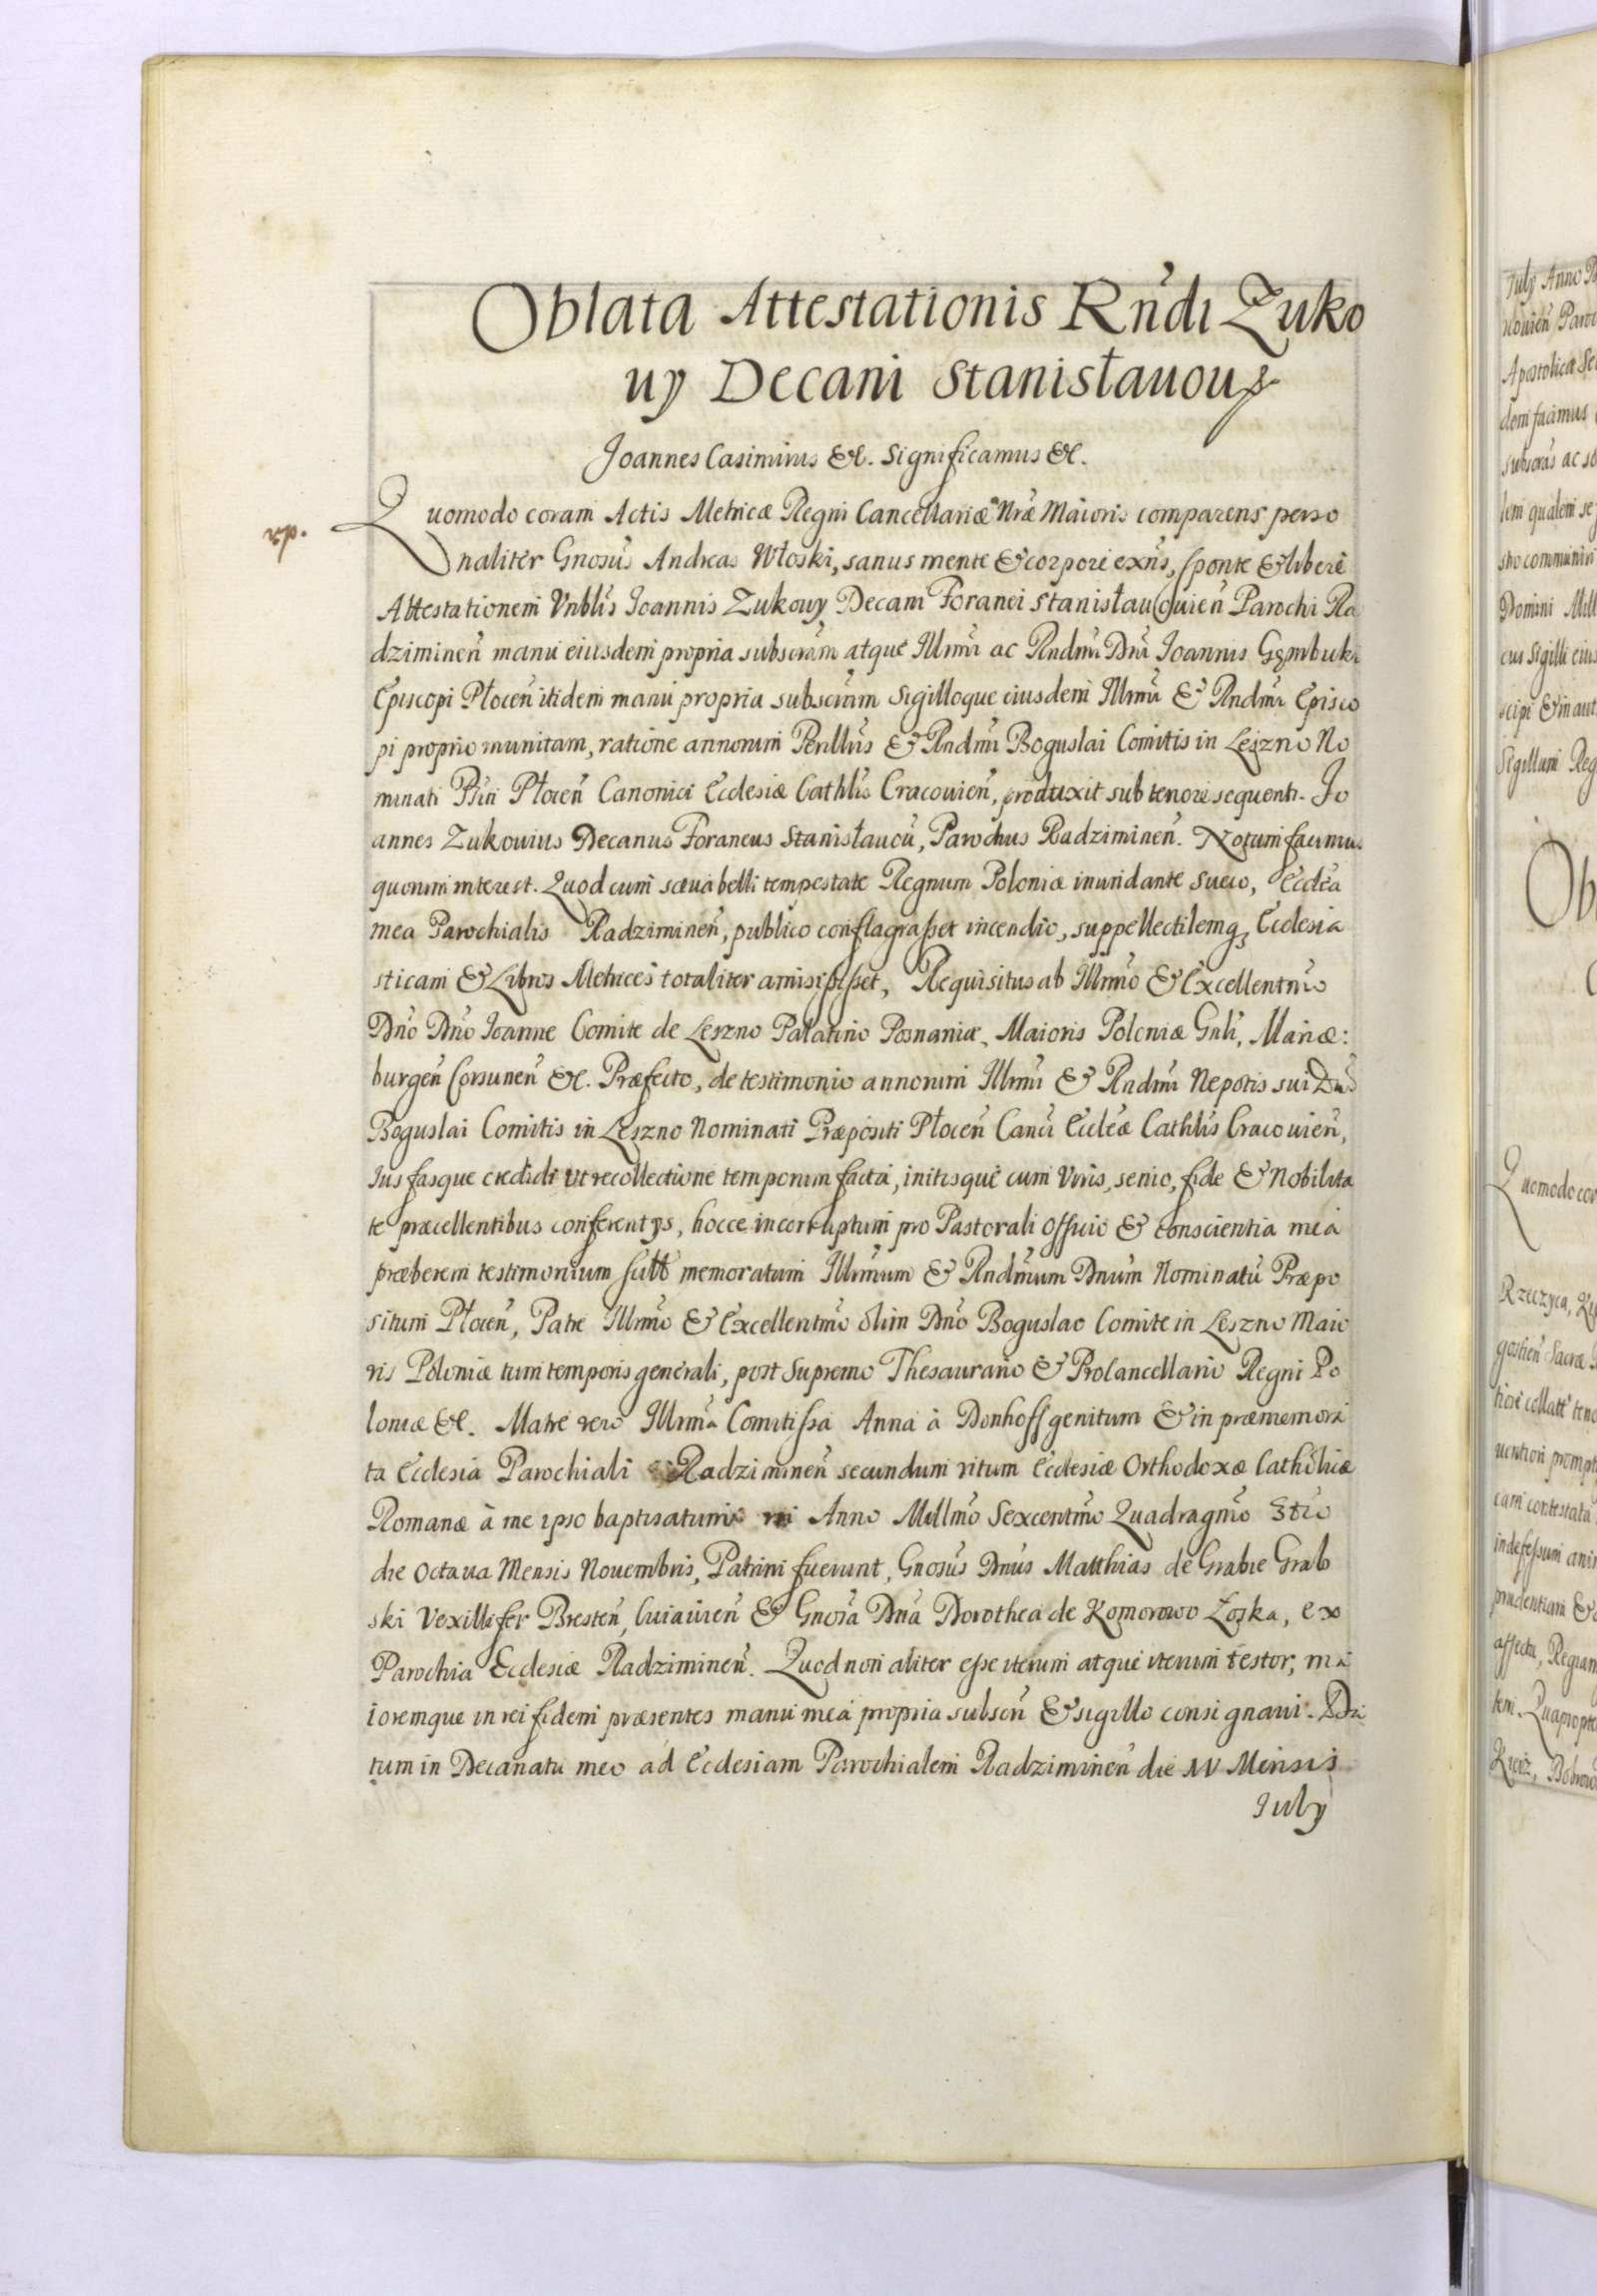 Oblata Attestationis Rñdi Zuko
uy Decani Stanisłauou
Joannes Casimirus &c. Significamus &c.
rp.
Quomodo coram Actis Metricæ Regni Cancellariæ Nræ Maioris comparens perso
naliter Gnosus Andreas Włoski, sanus mente & corpore exñs, sponte & libere
Attestationem Vnblis Ioannis Zukouy Decani Foranei Stanisłauouień Parochi Ra
dzimineñ manu eiusdem propria subscram atque Illmi ac Rndmi Dni Joannis Gembuki
Episcopi Płoceñ itidem manu propria subscram Sigilloque eiusdem Illmi & Rndmi Episco
pi proprio munitam, ratione annorum Perillus & Rndmi Boguslai Comitis in Leszno No
minati Płoceñ Canonici Ecclesiæ Cathlis Cracouieñ, produxit sub tenore sequenti. Jo
annes Zukouius Decanus Foraneus Stanisłauou, Parochus Radzimineñ. Notum facimus
quorum interest. Quod cum sæua belli tempestate Regnum Poloniæ inundante Sueco, Ecclea
mea Parochialis Radzimineñ, publico conflagrasset incendio, suppellectilemq, Ecclesia
sticam & Libros Metrices totaliter amisisset, Requisitus ab Illmo & Excellentmo
Dño Dño Ioanne Comite de Leszno Palatino Posnaniæ, Maioris Poloniæ Gnli, Mariæ:
burgeñ Corsuneñ &c. Præfecto, de testimonio annorum Illmi & Rndmi Nepotis sui Dni
Boguslai Comitis in Leszno Nominati Præpositi Płoceñ Canci Eccleæ Cathlis Cracouieñ,
Ius fasque credidi vt recollectione temporum facta, initisque cum Viris, senio, fide & Nobilita
te præcellentibus conferentijs, hocce incorruptum pro Pastorali officio & conscientia mea
præberem testimonium memoratum Illmum & Rndmum Dnum Nominatu Præpo
situm Płoceñ, Patre Illmo & Excellentmo olim Dño Boguslao Comite in Leszno Maio
ris Poloniæ tum temporis generali, post Supremo Thesaurario & Procancellario Regni Po
loniæ &c. Matre vero Illma Comitissa Anna à Donhoff genitum & in præmemora
ta Ecclesia Parochiali Radzimineñ secundum ritum Ecclesiæ Orthodoxæ Catholicæ
Romanæ à me ipso baptisatum Anno Millmo Sexcentmo Quadragmo 3tio
die Octaua Mensis Nouembris, Patrini fuerunt, Gnosus Dnus Matthias de Grabie Grab
ski Vexillifer Bresteñ, Cuiauieñ & Gnosa Dna Dorothea de Komorowo Łoska, ex
Parochia Ecclesiæ Radzimineñ. Quod non aliter esse iterum atque iterum testor, ma
ioremque in rei fidem præsentes manu mea propria subscri & sigillo consignaui. Da
tum in Decanatu meo ad Ecclesiam Parochialem Radzimineñ die Mensis
July